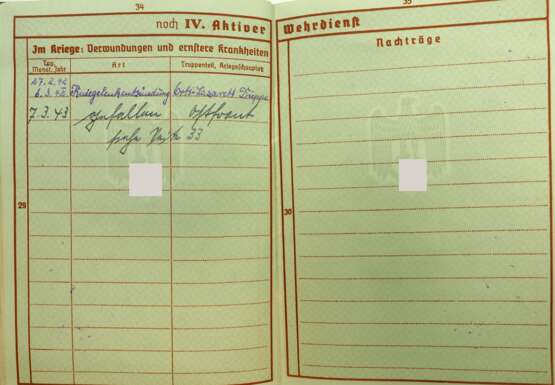 34
noch IV. Aktiver
Im Kriege: Verwundungen und ernstere Krankheiten
Tag, Monat, Jahr
Art
Truppenteil, Kriegsschauplatz
27.2.42
6.3.42 Kniegelenkentzündung Orts-Lazarett Dieppe
7.3.43 gefallen Ostfront
siehe Seite 33
29
35
Wehrdienst
Nachträge
30